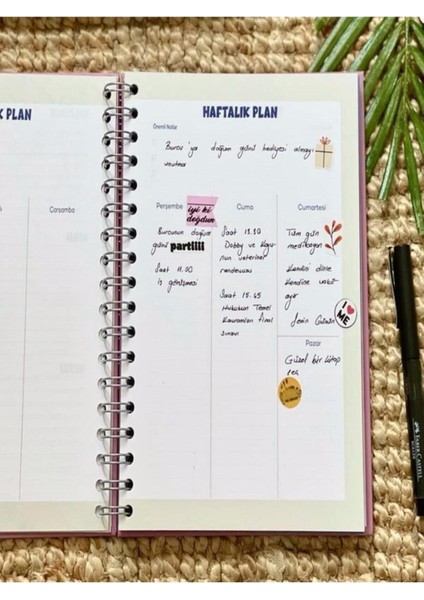 K PLAN
Çarşamba
HAFTALIK PLAN
Önemli Notlar
Burcu'ya doğum günü hediyesi almayı
unutma
Perşembe
iyi ki
doğdun
Burcunun doğum
günü partiiii
Saat 11.00
iş görüşmesi
Cuma
Saat 13.30
Dobby ve
nun veteriner
randevusu
Saat 15.45
Hukukun Temel
Kavramları final
sınavı
Cumartesi
Tüm gün
meditasyon
Kendini dinle
Kendine vakit
ayır
Senin Günün
I ME
Pazar
Güzel bir kitap
seç
FABER-CASTELL